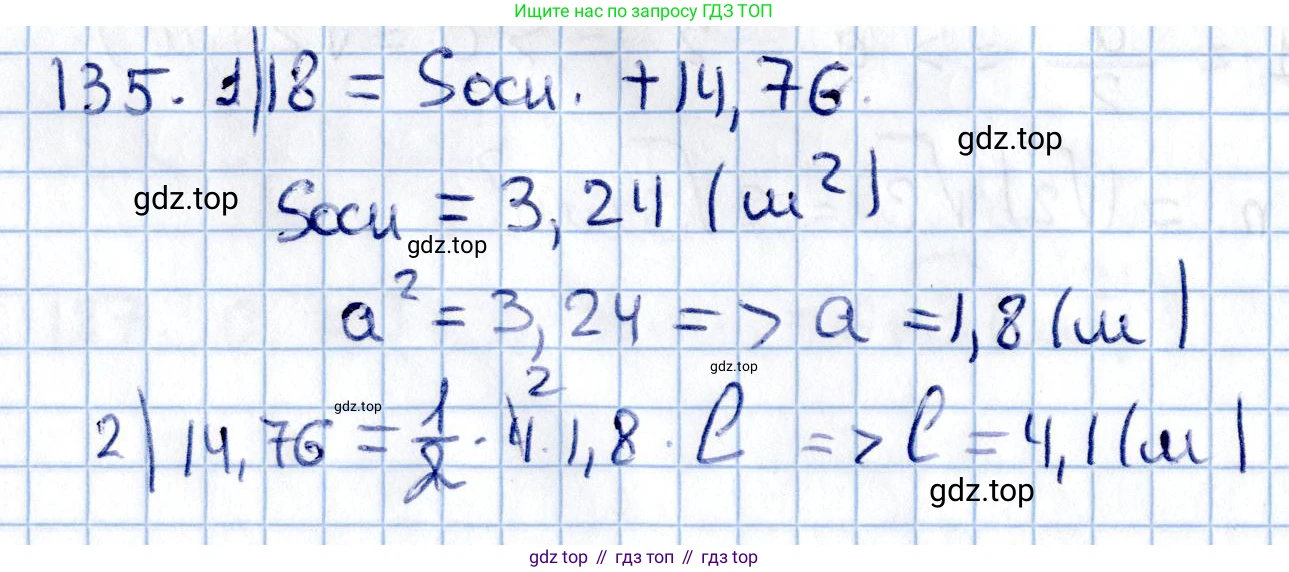 Ищите нас по запросу ГДЗ ТОП
135. 1) 18 = Sосн. + 14,76.
gdz.top
gdz.top
Sосн = 3,24 (м²)
gdz.top
a² = 3,24 => a = 1,8 (м)
gdz.top
2
gdz.top
2) 14,76 = 1/2 · 4 · 1,8 · l => l = 4,1 (м)
gdz.top
gdz top // гдз топ // гдз top